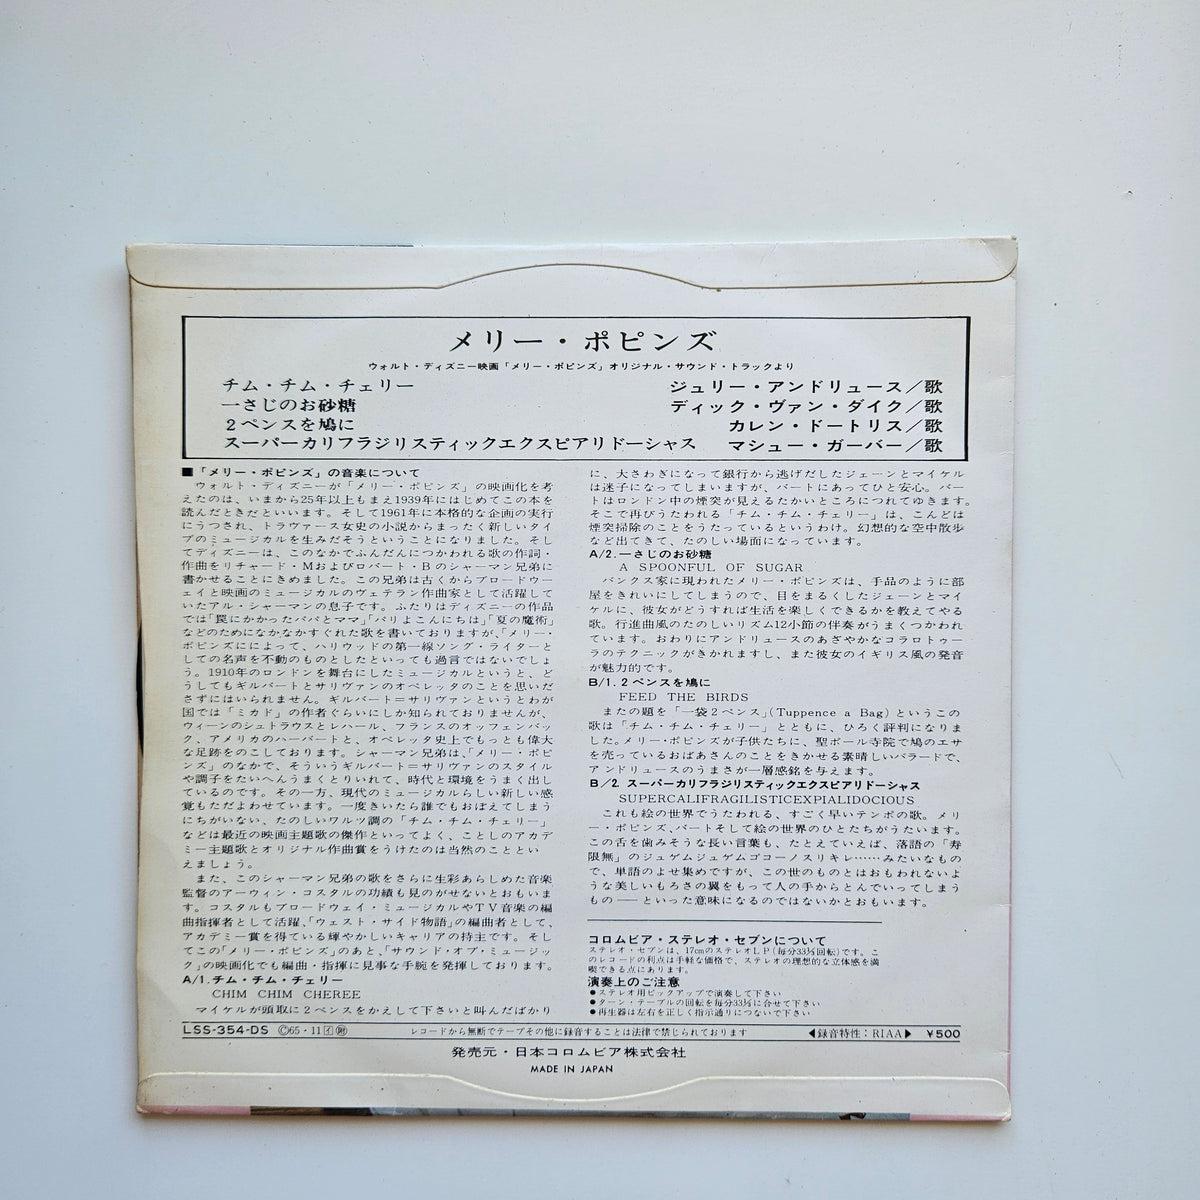 メリー・ポピンズ
ウォルト・ディズニー映画「メリー・ポピンズ」オリジナル・サウンド・トラックより
チム・チム・チェリー
一さじのお砂糖
2ペンスを鳩に
スーパーカリフラジリスティックエクスピアリドーシャス
ジュリー・アンドリュース/歌
ディック・ヴァン・ダイク/歌
カレン・ドートリス/歌
マシュー・ガーバー/歌
■「メリー・ポピンズ」の音楽について
ウォルト・ディズニーが「メリー・ポピンズ」の映画化を考
えたのは、いまから25年以上もまえ1939年にはじめてこの本を
読んだときだといいます。そして1961年に本格的な企画の実行
にうつされ、トラヴァース女史の小説からまったく新しいタイ
プのミュージカルを生みだそうということになりました。そし
てディズニーは、このなかでふんだんにつかわれる歌の作詞・
作曲をリチャード・MおよびロバートB のシャーマン兄弟に
書かせることにきめました。この兄弟は古くからブロードウー
ェイと映画のミュージカルのヴェテラン作曲家として活躍して
いたアル・シャーマンの息子です。ふたりはディズニーの作品
では「罠にかかったパパとママ」「パリよこんにちは」「夏の魔術」
などのためになかなかすぐれた歌を書いておりますが、「メリー・
ポピンズによによって、ハリウッドの第一線ソング・ライターと
しての名声を不動のものとしたといっても過言ではないでしょ
う。1910年のロンドンを舞台にしたミュージカルというと、ど
うしてもギルバートとサリヴァンのオペレッタのことを思いだ
さずにはいられません。ギルバート=サリヴァンというとわが
国では「ミカド」の作者ぐらいにしか知られておりませんが、
ウィーンのシュトラウスとレハール、フランスのオッフェンバッ
ク、アメリカのハーバートと、オペレッタ史上でもっとも偉大
な足跡をのこしております。シャーマン兄弟は、「メリー・ポピ
ンズ」のなかで、そういうギルバート=サリヴァンのスタイル
や調子をたいへんうまくとりいれて、時代と環境をうまく出し
ているのです。その一方、現代のミュージカルらしい新しい感
覚もただよわせています。一度きいたら誰でもおぼえてしまう
にちがいない、たのしいワルツ調の「チム・チム・チェリー」
などは最近の映画主題歌の傑作といってよく、ことしのアカデ
ミー主題歌とオリジナル作曲賞をうけたのは当然のこととい
えましょう。
また、このシャーマン兄弟の歌をさらに生彩あらしめた音楽
監督のアーウィン・コスタルの功績も見のがせないとおもいま
す。コスタルもブロードウェイ・ミュージカルやTV音楽の編
曲指揮者として活躍、「ウェスト・サイド物語」の編曲者として、
アカデミー賞を得ている輝やかしいキャリアの持主です。そし
てこの「メリー・ポピンズ」のあと、「サウンド・オブ・ミュージッ
ク」の映画化でも編曲・指揮に見事な手腕を発揮しております。
A/1. チム・チム・チェリー
CHIM CHIM CHEREE
マイケルが頭取に2ペンスをかえして下さいと叫んだばかり
に、大さわぎになって銀行から逃げだしたジェーンとマイケル
は迷子になってしまいますが、バートにあってひと安心。バー
トはロンドン中の煙突が見えるたかいところにつれてゆきます。
そこで再びうたわれる「チム・チム・チェリー」は、こんどは
煙突掃除のことをうたっているというわけ。幻想的な空中散歩
など出てきて、たのしい場面になっています。
A/2. 一さじのお砂糖
A SPOONFUL OF SUGAR
バンクス家に現われたメリー・ポピンズは、手品のように部
屋をきれいにしてしまうので、目をまるくしたジェーンとマイ
ケルに、彼女がどうすれば生活を楽しくできるかを教えてやる
歌。行進曲風のたのしいリズム12小節の伴奏がうまくつかわれ
ています。おわりにアンドリュースのあざやかなコラロトゥー
ラのテクニックがきかれますし、また彼女のイギリス風の発音
が魅力的です。
B/1. 2ペンスを鳩に
FEED THE BIRDS
またの題を「一袋2ペンス」(Tuppence a Bag)というこの
歌は「チム・チム・チェリー」とともに、ひろく評判になりま
した。メリー・ポピンズが子供たちに、聖ポール寺院で鳩のエサ
を売っているおばあさんのことをきかせる素晴しいバラードで、
アンドリュースのうまさが一層感銘を与えます。
B/2. スーパーカリフラジリスティックエクスピアリドーシャス
SUPERCALIFRAGILISTICEXPIALIDOCIOUS
これも絵の世界でうたわれる、すごく早いテンポの歌。メリ
ー・ポピンズ、バートそして絵の世界のひとたちがうたいます。
この舌を歯みそうな長い言葉も、たとえていえば、落語の「寿
限無」のジュゲムジュゲムゴコーノスリキレ……みたいなもの
で、単語のよせ集めですが、この世のものとはおもわれないよ
うな美しいもろさの翼をもって人の手からとんでいってしまう
もの――といった意味になるのではないかとおもいます。
コロムビア・ステレオ・セブンについて
ステレオ・セブンは、17cmのステレオLP(毎分33⅓回転)です。こ
のレコードの利点は手軽な価格で、ステレオの理想的な立体感を満
喫できる点にあります。
演奏上のご注意
●ステレオ用ピックアップで演奏して下さい
●ターン・テーブルの回転を毎分33⅓に合せて下さい
●再生器は左右を正しく指示通りにつないで下さい
LSS-354-DS Ⓒ65・11 レコードから無断でテープその他に録音することは法律で禁じられております ◀録音特性:RIAA▶ ¥500
発売元・日本コロムビア株式会社
MADE IN JAPAN